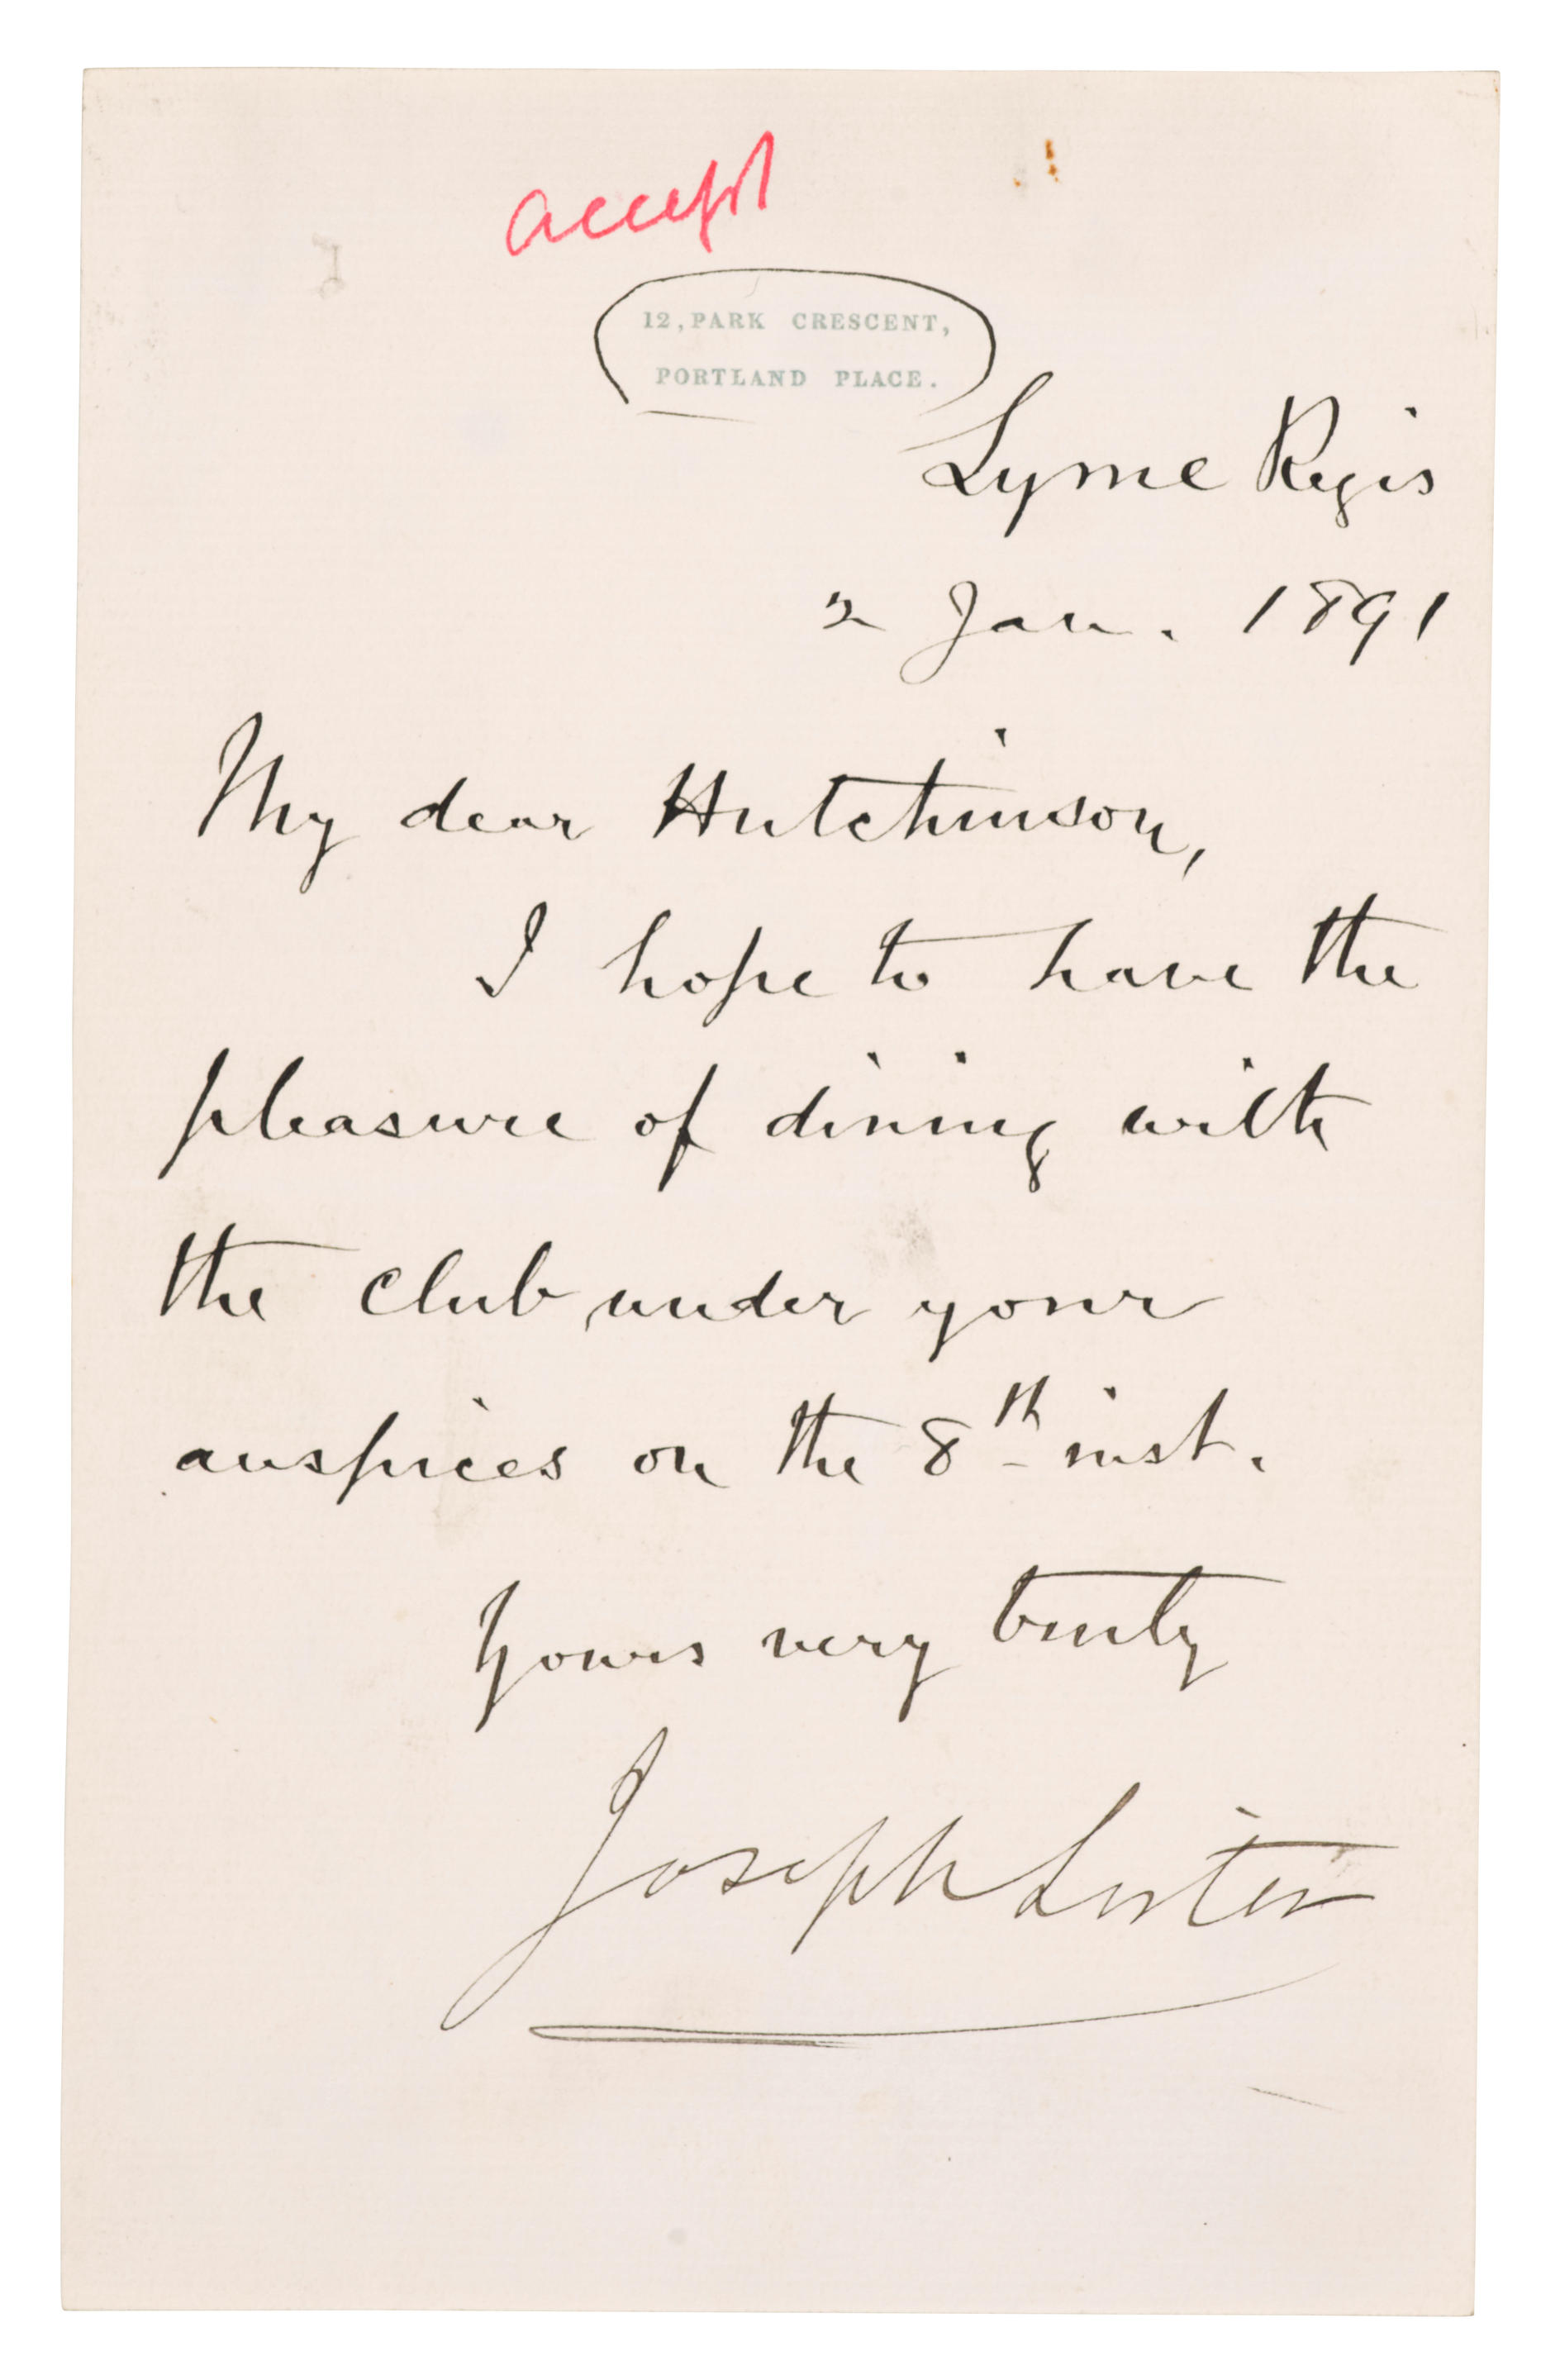 accept
12, PARK CRESCENT,
PORTLAND PLACE.
Lyme Regis
2 Jan. 1891
My dear Hutchinson,
I hope to have the
pleasure of dining with
the club, under your
auspices on the 8th inst.
Yours very truly
Joseph Lister